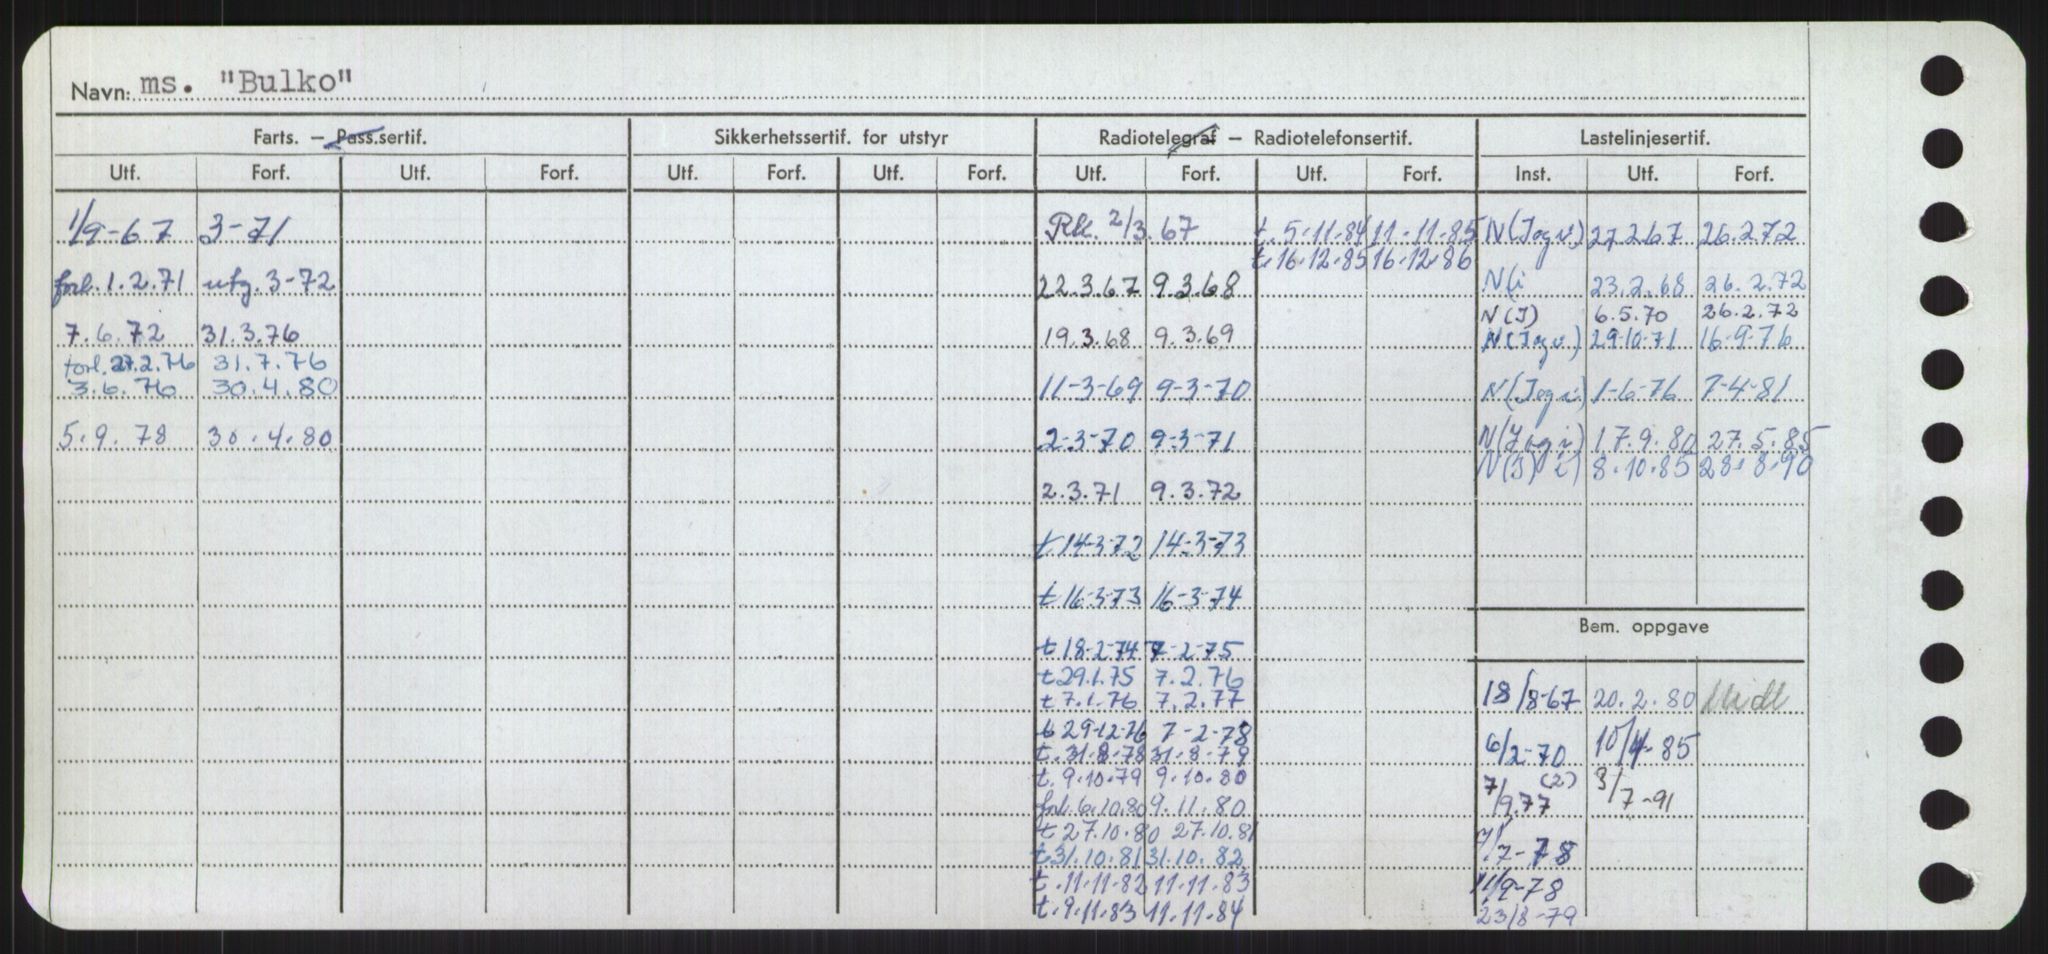 Navn: ms. "Bulko"
Farts. — Pass.sertif. Sikkerhetssertif. for utstyr Radiotelegraf — Radiotelefonsertif. Lastelinjesertif.
Utf. Forf. Utf. Forf. Utf. Forf. Utf. Forf. Utf. Forf. Utf. Forf. Inst. Utf. Forf.
1/9-67 3-71
forl. 1.2.71 utg. 3-72
7.6.72 31.3.76
forl. 27.2.76 31.7.76
3.6.76 30.4.80
5.9.78 30.4.80
2/3.67
22.3.67 9.3.68
19.3.68 9.3.69
11-3-69 9-3-70
2-3-70 9-3-71
2.3.71 9.3.72
t 14-3-72 14-3-73
t 16-3-73 16-3-74
t 18-2-74 7-2-75
t 29.1.75 7.2.76
t 7.1.76 7.2.77
t 29-12-76 7-2-78
t. 31.8.78 31.8-79
t. 9.10.79 9.10.80
forl. 6.10.80 9.11.80
t 27.10.80 27.10.81
t. 31.10.81 31.10.82
t. 11.11.82 11.11.83
t. 9.11.83 11.11.84
t. 5.11.84 11.11.85
t. 16.12.85 16.12.86
N(I og v.) 27.2.67 26.2.72
N(i 23.2.68 26.2.72
N(I) 6.5.70 26.2.72
N(I og v.) 29-10-71 16-9-76
N(I og i) 1-6-76 7-4-81
N(I og i) 17.9.80 27.5.85
N(I) i) 8.10.85 28.8.90
Bem. oppgave
18/8-67 20.2.80
6/2-70 10/4-85
7/9.77 (2) 3/7-91
7/7-78
11/9-78
23/8-79